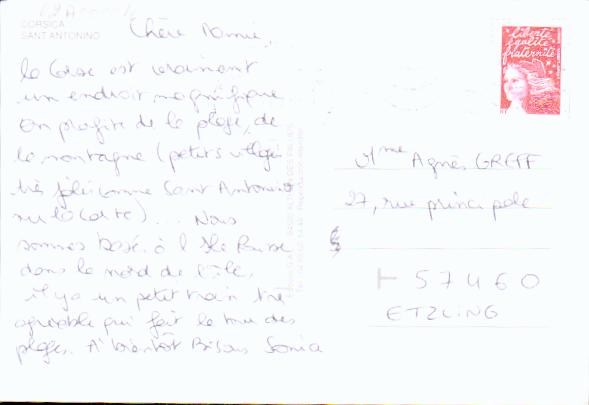 CORSICA
SANT ANTONINO
Chère Mamie,
la Corse est vraiment
un endroit magnifique
on profite de la plage, de
la montagne (petits villages
très jolis comme Sant Antonino
sur la carte)... Nous
sommes basé à l'Ile Rousse
dans le nord de l'île,
il y a un petit train très
agréable qui fait le tour des
plages. A bientôt Bisous Sonia
liberté
égalité
fraternité
Mme Agnès GREFF
27, rue principale
57460
ETZLING